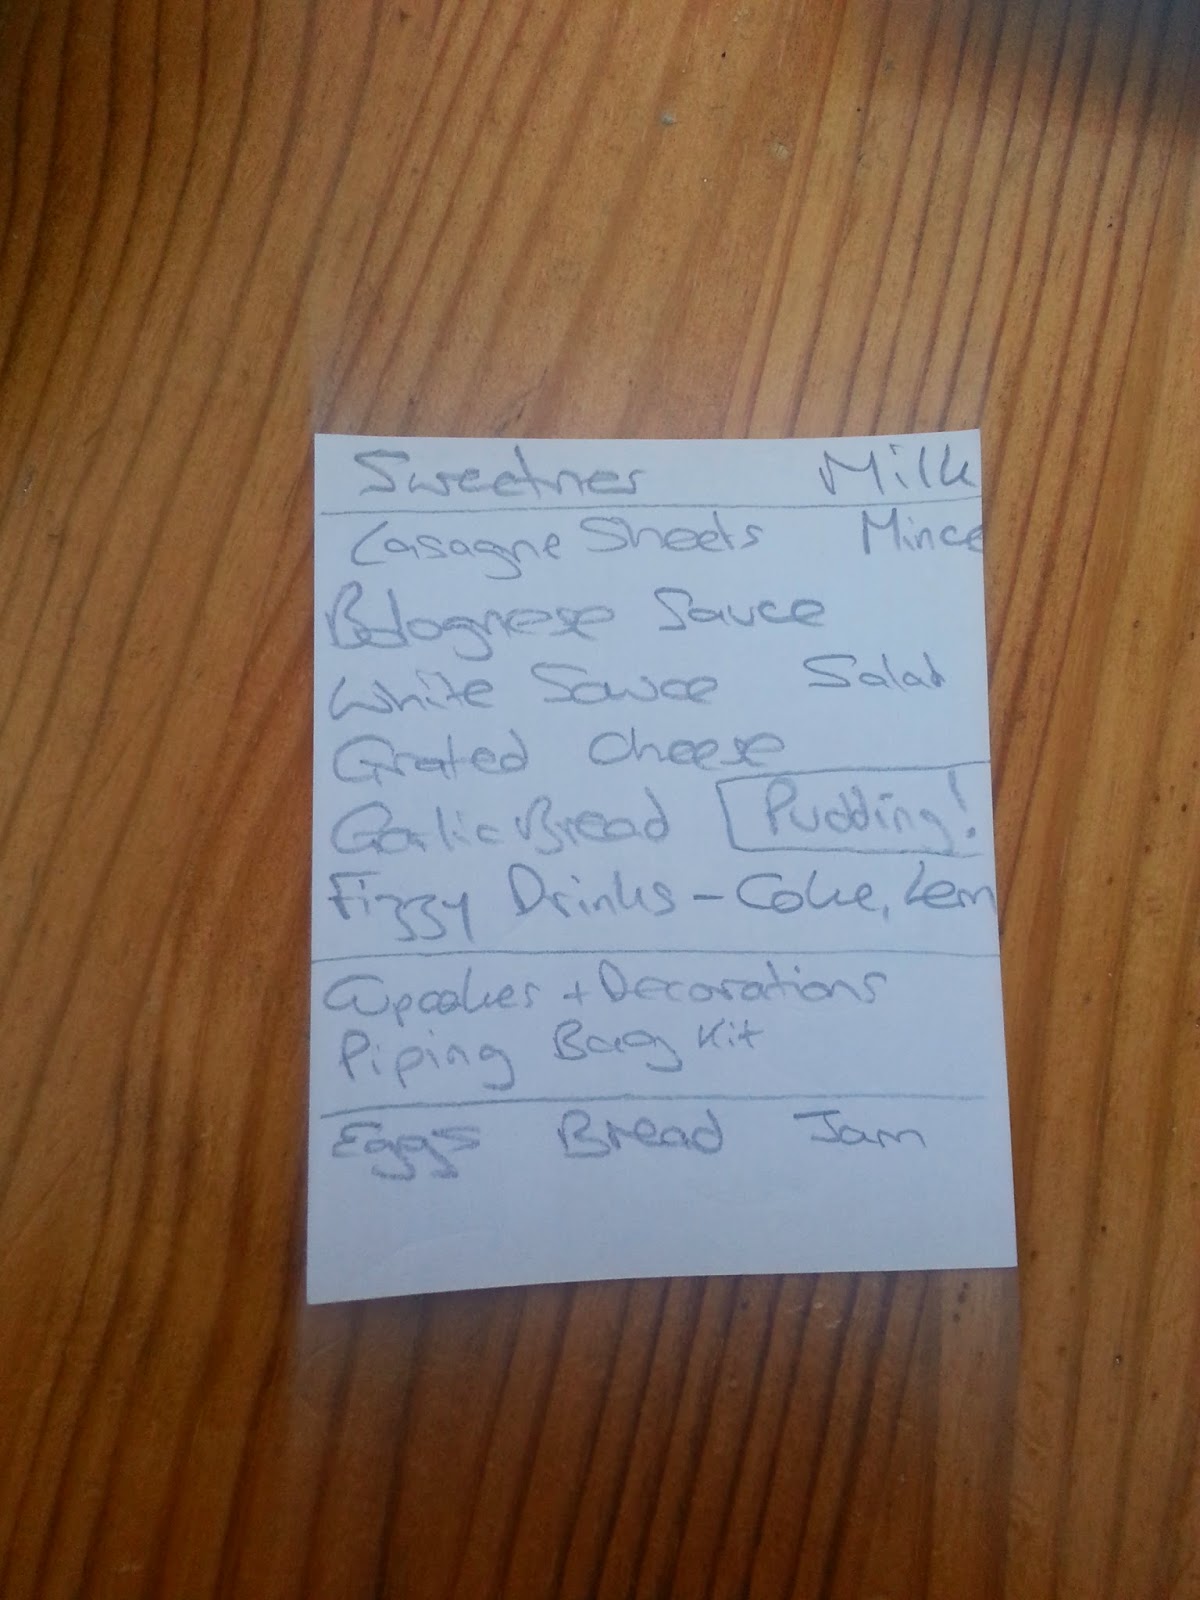 Sweetner Milk
Lasagne Sheets Mince
Bolognese Sauce
White Sauce Salad
Grated Cheese
Garlic Bread Pudding!
Fizzy Drinks - Coke, Lem
Cupcakes + Decorations
Piping Bag Kit
Eggs Bread Jam